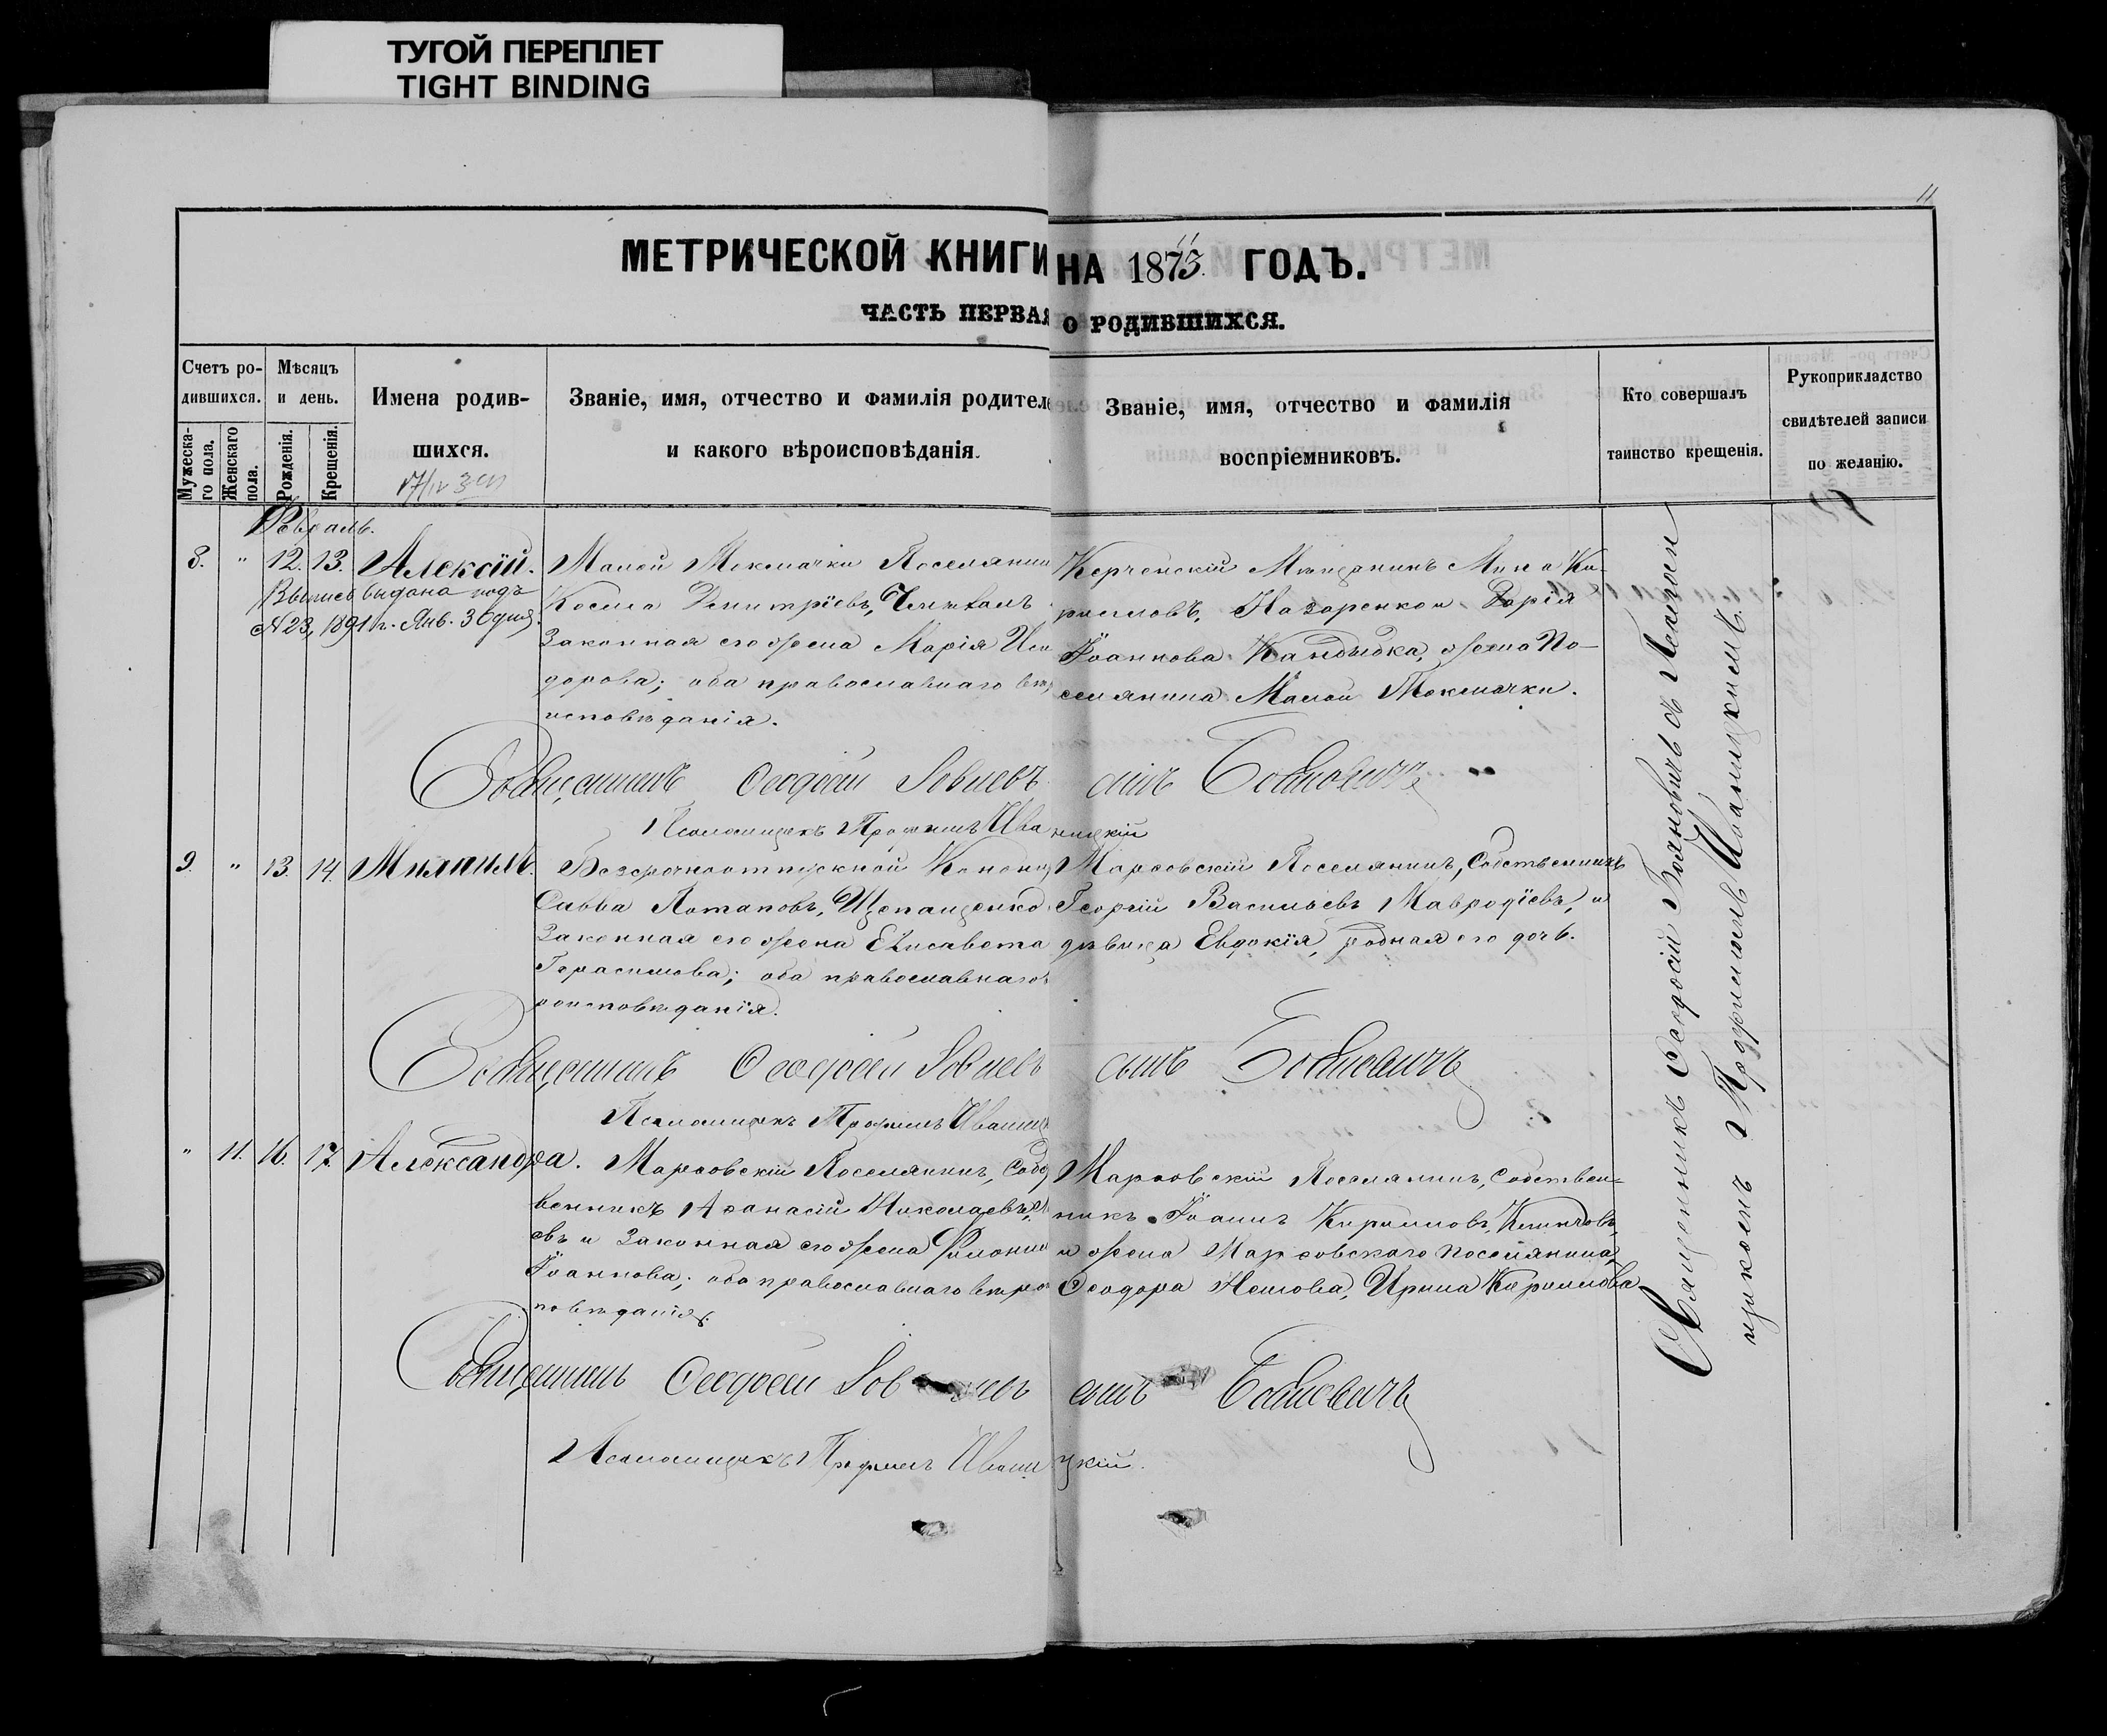 ТУГОЙ ПЕРЕПЛЕТ
TIGHT BINDING
11
МЕТРИЧЕСКОЙ КНИГИ НА 1873 ГОДЪ.
ЧАСТЬ ПЕРВАЯ О РОДИВШИХСЯ.
Счетъ ро-
дившихся.
Мужеска-
го пола.
Женскаго
пола.
Мѣсяцъ
и день.
Рожденія.
Крещенія.
Имена родив-
шихся.
Званіе, имя, отчество и фамилія родителе
и какого вѣроисповѣданія.
Званіе, имя, отчество и фамилія
воспріемниковъ.
Кто совершалъ
таинство крещенія.
Рукоприкладство
свидѣтелей записи
по желанію.
Февраль.
8. " 12. 13. Алексій.
Выпись выдана подъ
№ 23, 1891 г. Янв. 30 дня.
Малой Токмачки Поселянин
Косма Димитріевъ,
Законная его жена Марія Иси
дорова; оба православнаго вѣ
исповѣданія.
Керченскій Мѣщанинъ Мина Ки-
рилловъ, Назаренко и Дарія
Іоаннова Кандыбка, жена По-
селянина Малой Токмачки.
Священникъ Ѳеодосій Іовлевъ сынъ
Псаломщикъ Трофимъ Иваницкій
9. " 13. 14. Михаилъ.
Безсрочноотпускной Канони
Савва Потаповъ, Щепащенко
Законная его жена Елисавета
Герасимова; оба православнаго
роисповѣданія.
Марѳовскій Поселянинъ, Собственникъ
Георгій Васильевъ Мавродіевъ, и
дѣвица Евдокія, родная его дочь.
Священникъ Ѳеодосій Іовлевъ сынъ
Псаломщикъ Трофимъ Иваниц
" 11. 16. 17. Александра.
Марѳовскій Поселянинъ, Собс
венникъ Аѳанасій Николаевъ,
евъ и Законная его жена
Іоаннова; оба православнаго вѣро
повѣданія.
Марѳовскій Поселянинъ, Собствен-
никъ Іоаннъ Кирилловъ,
и жена Марѳовскаго поселянина
Ѳеодора Немова, Ирина Кириллова
Священникъ Ѳеодосій Іовлевъ сынъ
Псаломщикъ Трофимъ Иваницкій.
Священникъ Ѳеодосій съ Псалом
щикомъ Трофимомъ Иваницкимъ.